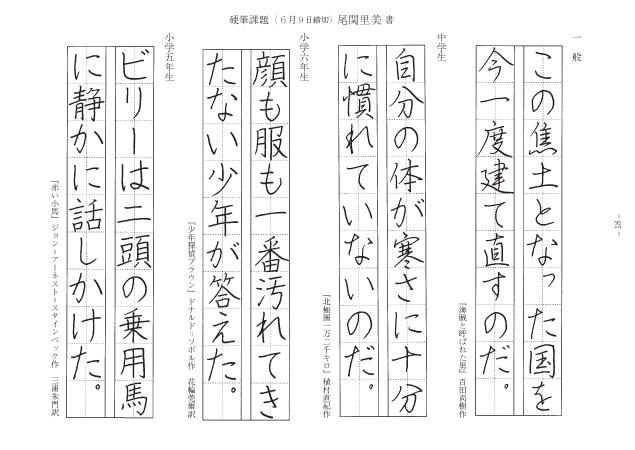 硬筆課題（６月９日締切）尾関里美 書
一般
この焦土となった国を
今一度建て直すのだ。
『海賊と呼ばれた男』百田尚樹作
中学生
自分の体が寒さに十分
に慣れていないのだ。
『北極圏一万二千キロ』植村直己作
小学六年生
顔も服も一番汚れてき
たない少年が答えた。
『少年探偵ブラウン』ドナルド＝ソボル作 花輪莞爾訳
小学五年生
ビリーは二頭の乗用馬
に静かに話しかけた。
『赤い小馬』ジョン＝アーネスト＝スタインベック作 三浦朱門訳
- 18 -